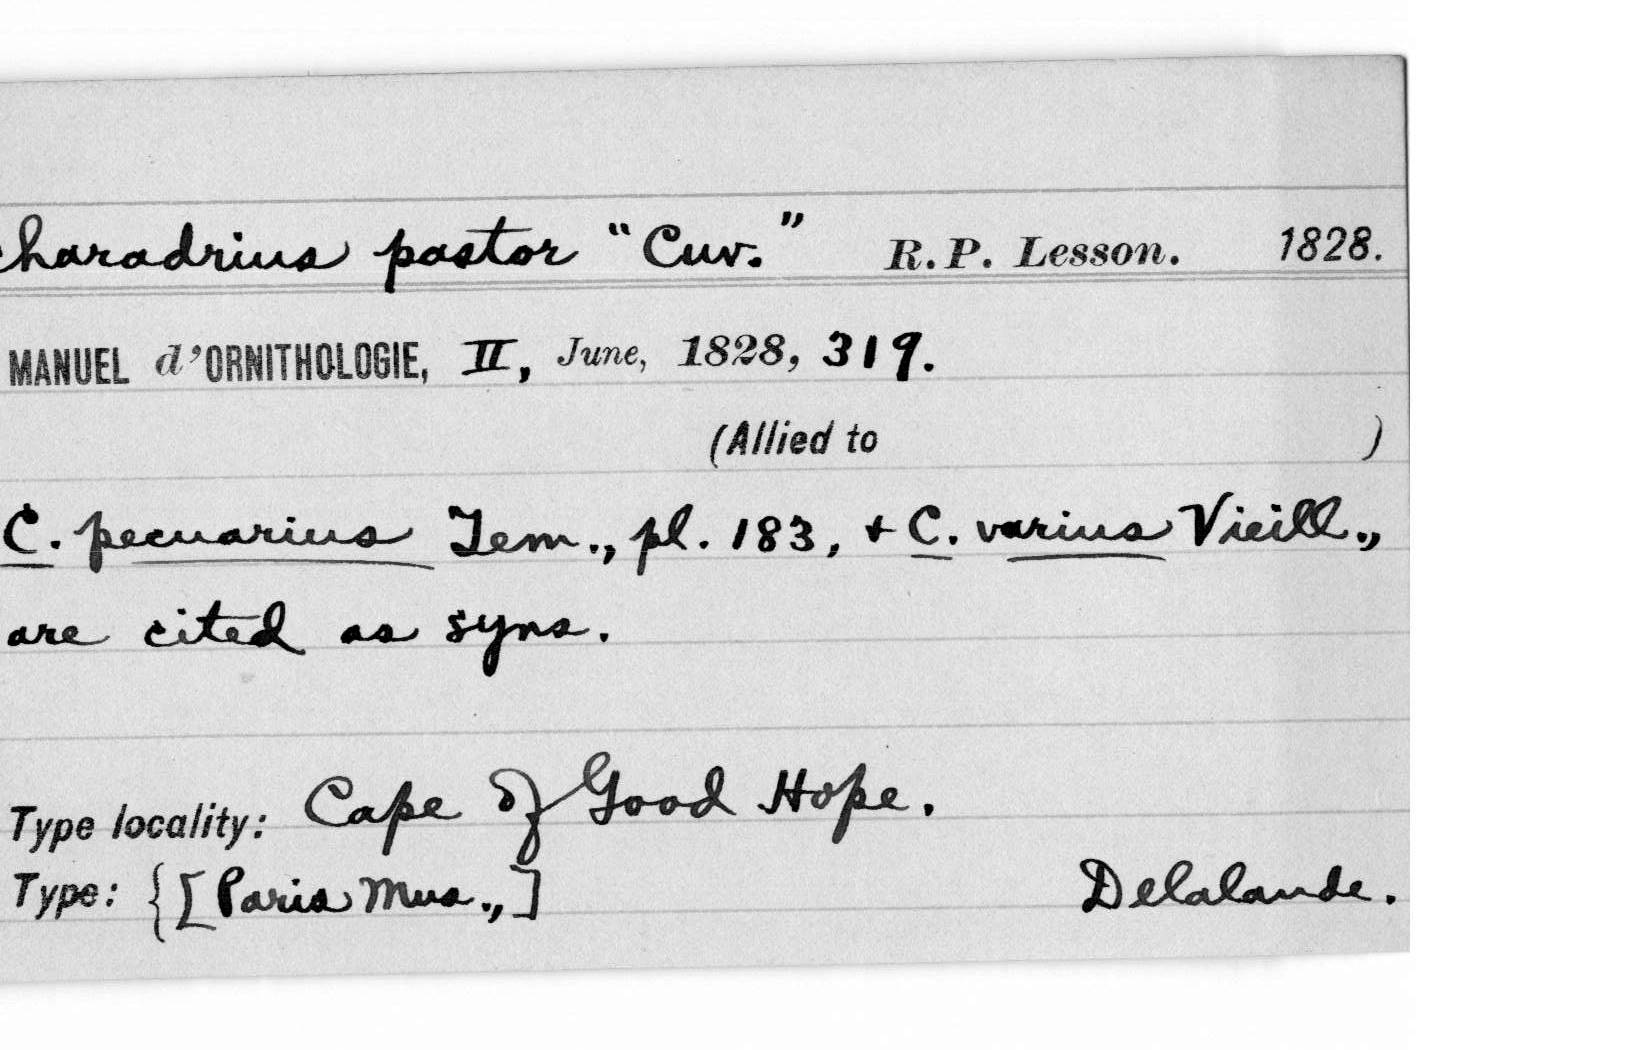 Charadrius pastor "Cuv." R.P. Lesson. 1828.
MANUEL d'ORNITHOLOGIE, II, June, 1828, 319.
(Allied to )
C. pecuarius Tem., pl. 183, + C. varius Vieill.,
are cited as syns.
Type locality: Cape of Good Hope.
Type: {[Paris Mus.,] Delalande.